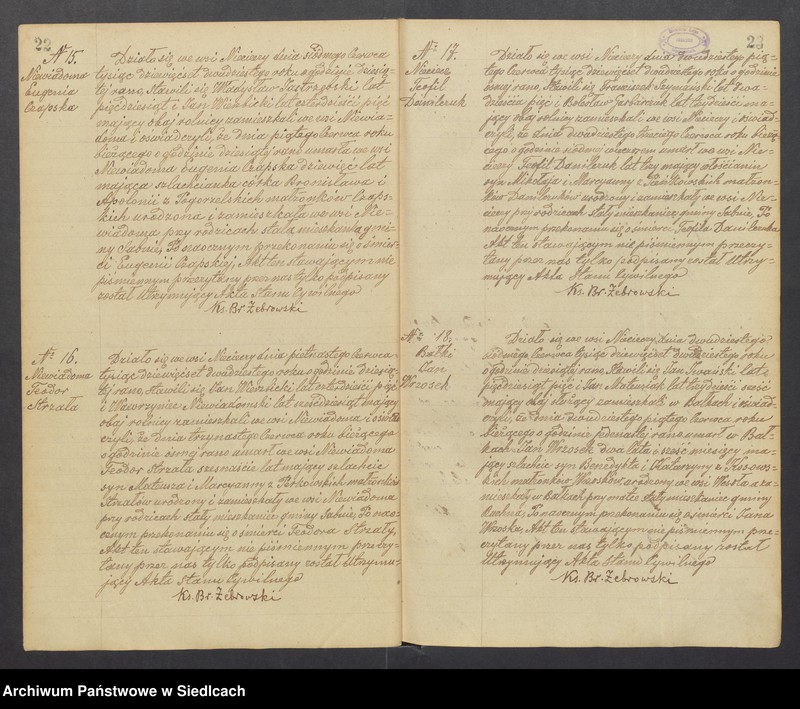 22
Nº 15.
Niewiadoma
Eugenia
Czapska
Działo się we wsi Nieciery dnia siódmego Czerwca
tysiąc dziewięćset dwudziestego roku o godzinie dziesią-
tej rano, Stawili się Władysław Jastrzębski lat
pięćdziesiąt i Jan Wierzbicki lat czterdzieści pięć
mający obaj rolnicy zamieszkali we wsi Niewia-
doma i oświadczyli, że dnia piątego Czerwca roku
bieżącego o godzinie dziesiątej rano umarła we wsi
Niewiadoma Eugenia Czapska dziewięć lat
mająca szlachcianka córka Bronisława i
Apolonii z Pogorzelskich małżonków Czaps-
kich urodzona i zamieszkała we wsi Nie-
wiadoma przy rodzicach stała mieszkanka gmi-
ny Sabnie, Po naocznym przekonaniu się o śmier-
ci Eugenii Czapskiej, Akt ten stawającym nie
piśmiennym przeczytany przez nas tylko podpisany
został Utrzymujący Akta Stanu Cywilnego
Ks. Br. Żebrowski
Nº 16.
Niewiadoma
Teodor
Strzała
Działo się we wsi Nieciery dnia piętnastego Czerwca
tysiąc dziewięćset dwudziestego roku o godzinie dziesią-
tej rano, Stawili się Jan Wierzbicki lat czterdzieści pięć
i Wawrzyniec Niewiadomski lat sześćdziesiąt mający
obaj rolnicy zamieszkali we wsi Niewiadoma i oświad-
czyli, że dnia trzynastego Czerwca roku bieżącego
o godzinie ósmej rano umarł we wsi Niewiadoma
Teodor Strzała szesnaście lat mający szlachcic
syn Mateusza i Marcyanny z Petkowskich małżonków
Strzałów urodzony i zamieszkały we wsi Niewiadoma
przy rodzicach stały mieszkaniec gminy Sabnie, Po nao-
cznym przekonaniu się o śmierci Teodora Strzały,
Akt ten stawającym nie piśmiennym przeczy-
tany przez nas tylko podpisany został Utrzymu-
jący Akta Stanu Cywilnego
Ks. Br. Żebrowski
23
Nº 17.
Nieciecz
Teofil
Daniluk
Działo się we wsi Nieciery dnia dwudziestego pią-
tego Czerwca tysiąc dziewięćset dwudziestego roku o godzinie
ósmej rano, Stawili się Franciszek Szymański lat dwa-
dzieścia pięć i Bolesław lat trzydzieści ma-
jący obaj rolnicy zamieszkali we wsi Nieciery i oświad-
czyli, że dnia dwudziestego trzeciego Czerwca roku bieżą-
cego o godzinie siódmej wieczorem umarł we wsi Nie-
ciery Teofil Daniluk lat trzy mający włościanin
syn Mikołaja i Marcyanny z małżon-
ków Daniluków urodzony i zamieszkały we wsi Nie-
ciery przy rodzicach stały mieszkaniec gminy Sabnie, Po
naocznym przekonaniu się o śmierci Teofila Daniluka
Akt ten stawającym nie piśmiennym przeczy-
tany przez nas tylko podpisany został Utrzy-
mujący Akta Stanu Cywilnego
Ks. Br. Żebrowski
Nº 18.
Bałki
Jan
Wrzosek
Działo się we wsi Nieciery dnia dwudziestego
siódmego Czerwca tysiąc dziewięćset dwudziestego roku
o godzinie dziesiątej rano, Stawili się Jan Iwański lat
pięćdziesiąt pięć i Jan Matusiak lat trzydzieści sześć
mający obaj zamieszkali w Bałkach i oświad-
czyli, że dnia dwudziestego piątego Czerwca roku
bieżącego o godzinie jedenastej rano, umarł w Bał-
kach Jan Wrzosek dwa lata i sześć miesięcy ma-
jący szlachcic syn Benedykta i Katarzyny z Kosows-
kich małżonków Wrzosków, urodzony we wsi a za-
mieszkały w Bałkach przy matce stały mieszkaniec gminy
Po naocznym przekonaniu się o śmierci Jana
Wrzoska, Akt ten stawającym nie piśmiennym prze-
czytany przez nas tylko podpisany został
Utrzymujący Akta Stanu Cywilnego
Ks. Br. Żebrowski
Archiwum Państwowe w Siedlcach